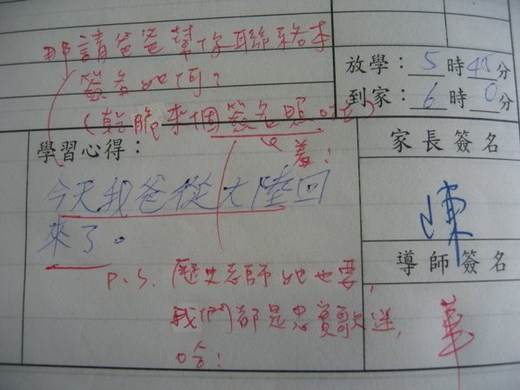 那請爸爸幫你聯絡本
簽名如何?
(乾脆來個簽名照
羞!
放學:5時40分
到家:6時0分
學習心得:
今天我爸從大陸回
來了。
P.S. 歷史老師她也要,
我們都是忠實歌迷,
哈!
家長簽名
陳
導師簽名